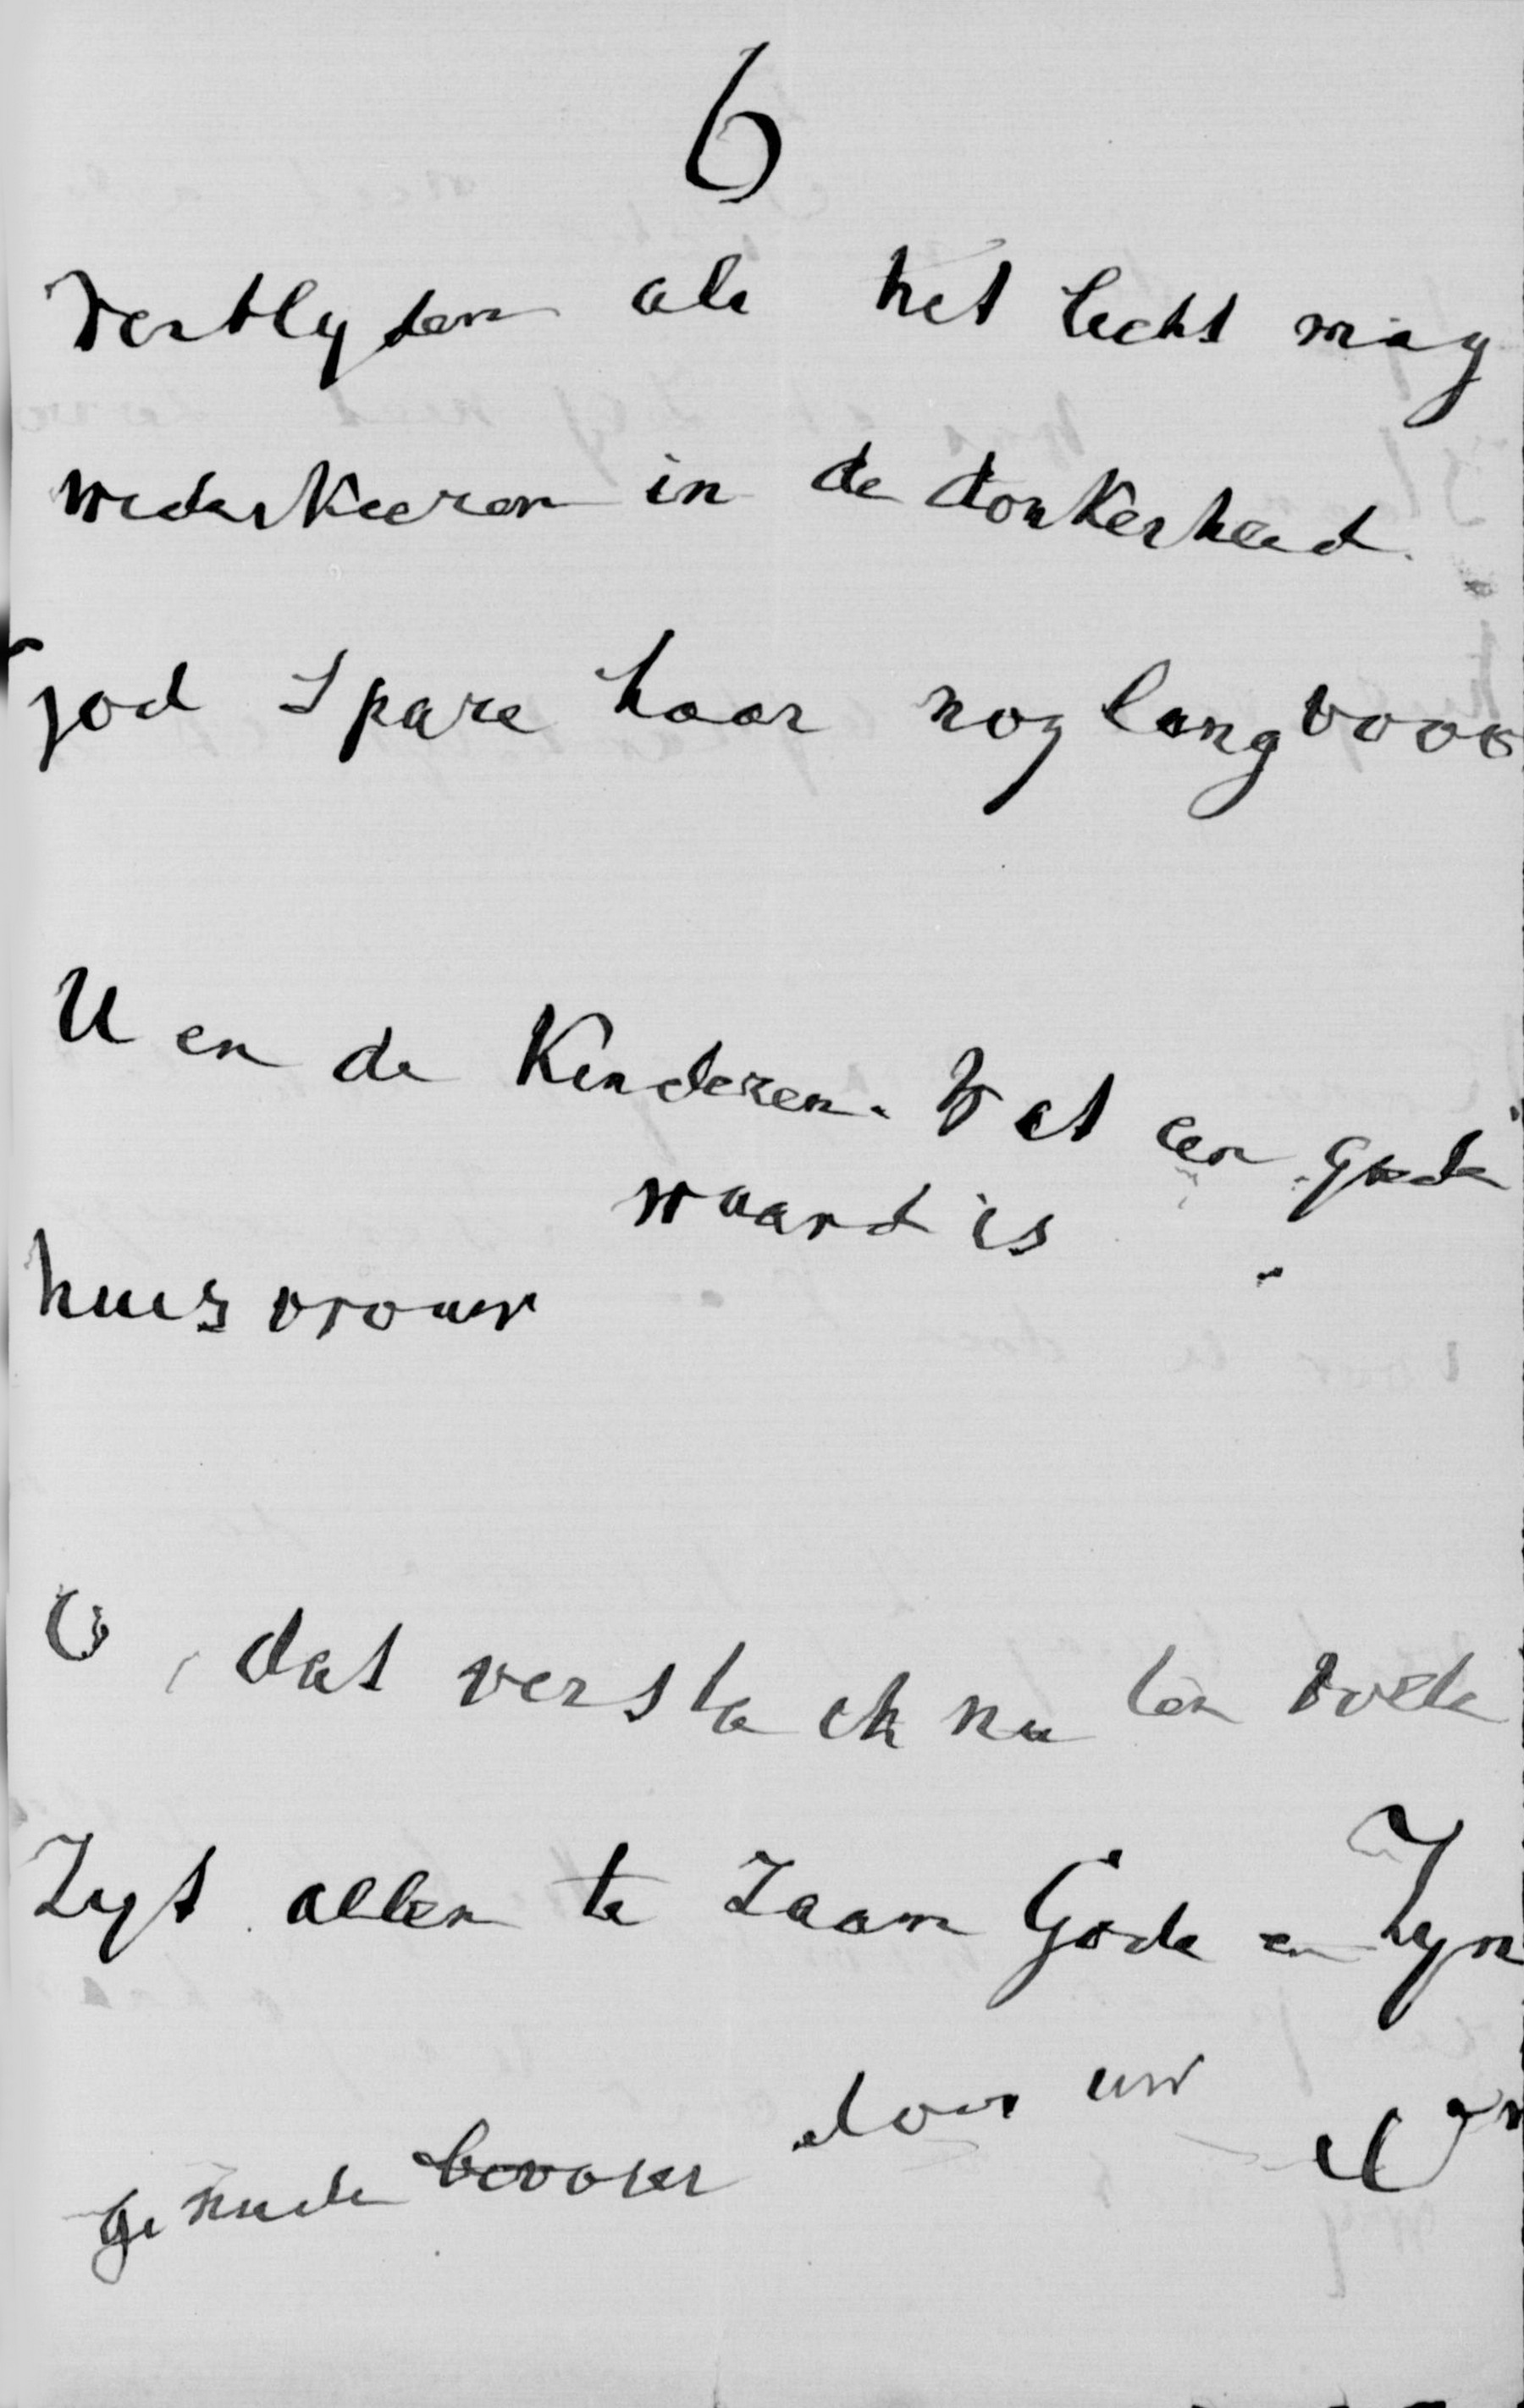 6
verblyden als het licht mag
wederkeeren in de donkerheid.
god spare haar nog lang voor
U en de Kinderen. Wat een goede
waard is
huisvrouw
O, dat versta ik nu ten volle
Zyt allen te zaam Gode en Zyn
genade bevolen door uw